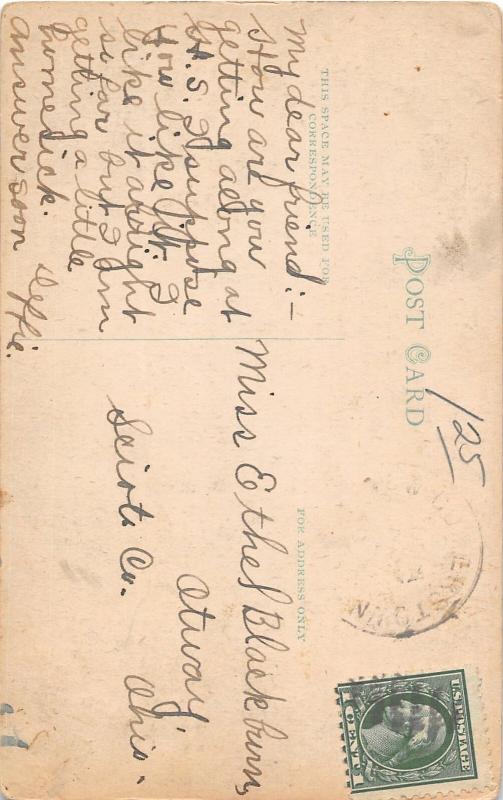 POST CARD
1 25
THIS SPACE MAY BE USED FOR
CORRESPONDENCE
FOR ADDRESS ONLY
U.S. POSTAGE
1 CENT 1
My dear friend:—
How are you
getting along at
H. S. I suppose
you like it. I
like it allright
so far but I am
getting a little
homesick.
answer soon Effie.
Miss Ethel Blackburn,
Otway,
Scioto Co. Ohio.